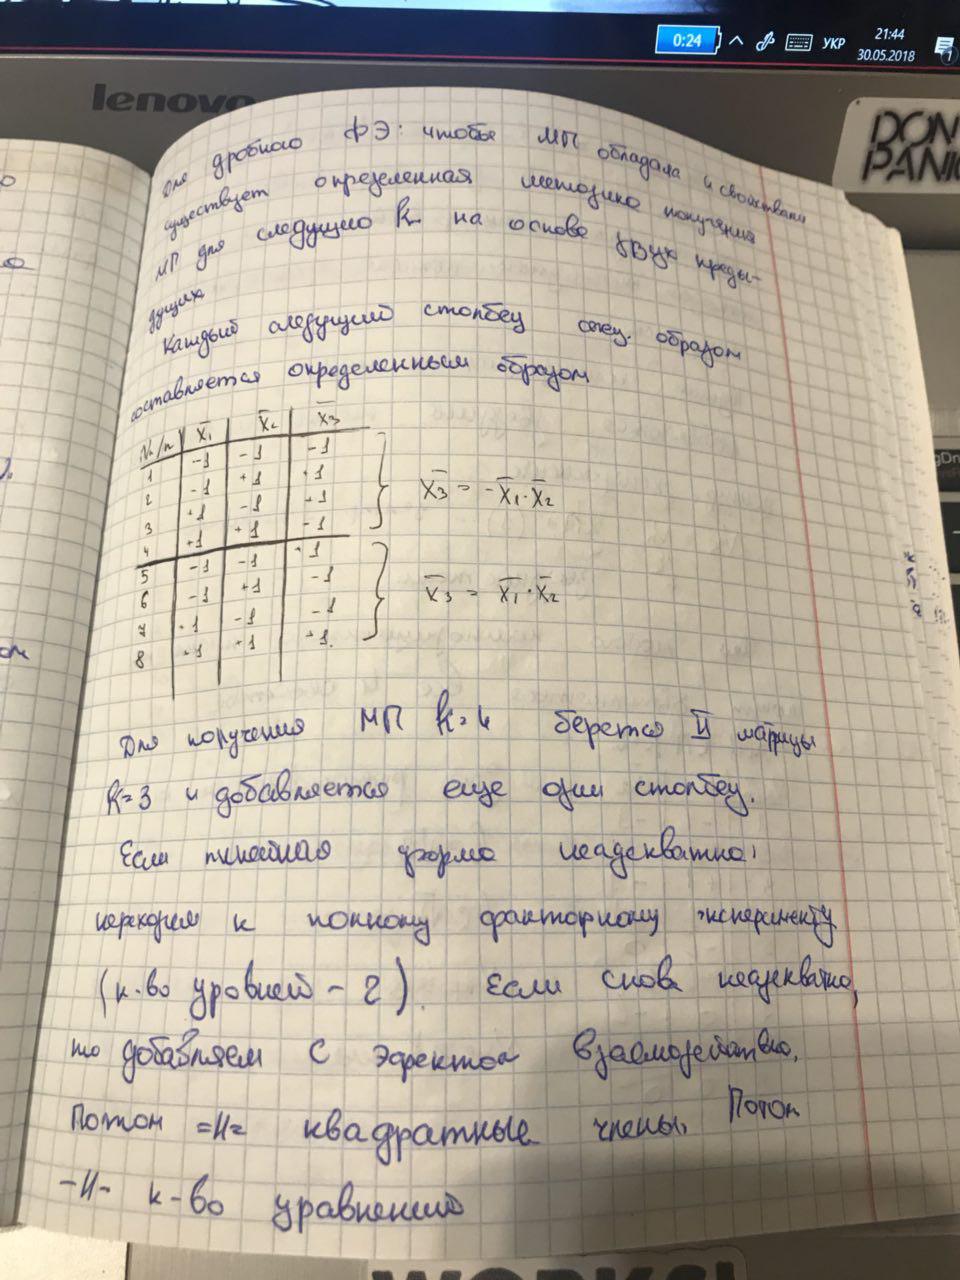 0:24 УКР 21:44
30.05.2018
lenovo
DON'
PANIC
Для дробного ФЭ: чтобы МП обладала и свойствами
существует определенная методика получения
МП для следущио k на основе двух преды-
дущих
Каждый следущий столбец след. образом
составляется определенным образом
№/п X̅₁ X̅₂ X̅₃
1 -1 -1 -1
2 -1 +1 +1
3 +1 -1 +1
4 +1 +1 -1
X̅₃ = -X̅₁·X̅₂
5 -1 -1 +1
6 -1 +1 -1
7 +1 -1 -1
8 +1 +1 +1
X̅₃ = X̅₁·X̅₂
Для получения МП k=4 берется II матрицы
k=3 и добавляется еще один столбец.
Если линейная форма неадекватна,
переходим к полному факторному эксперименту
(к-во уровней - 2). Если снова неадекватна,
то добавляем с эфектом взаемодействия.
Потом =//= квадратные члены. Потом
-//- к-во уравнений